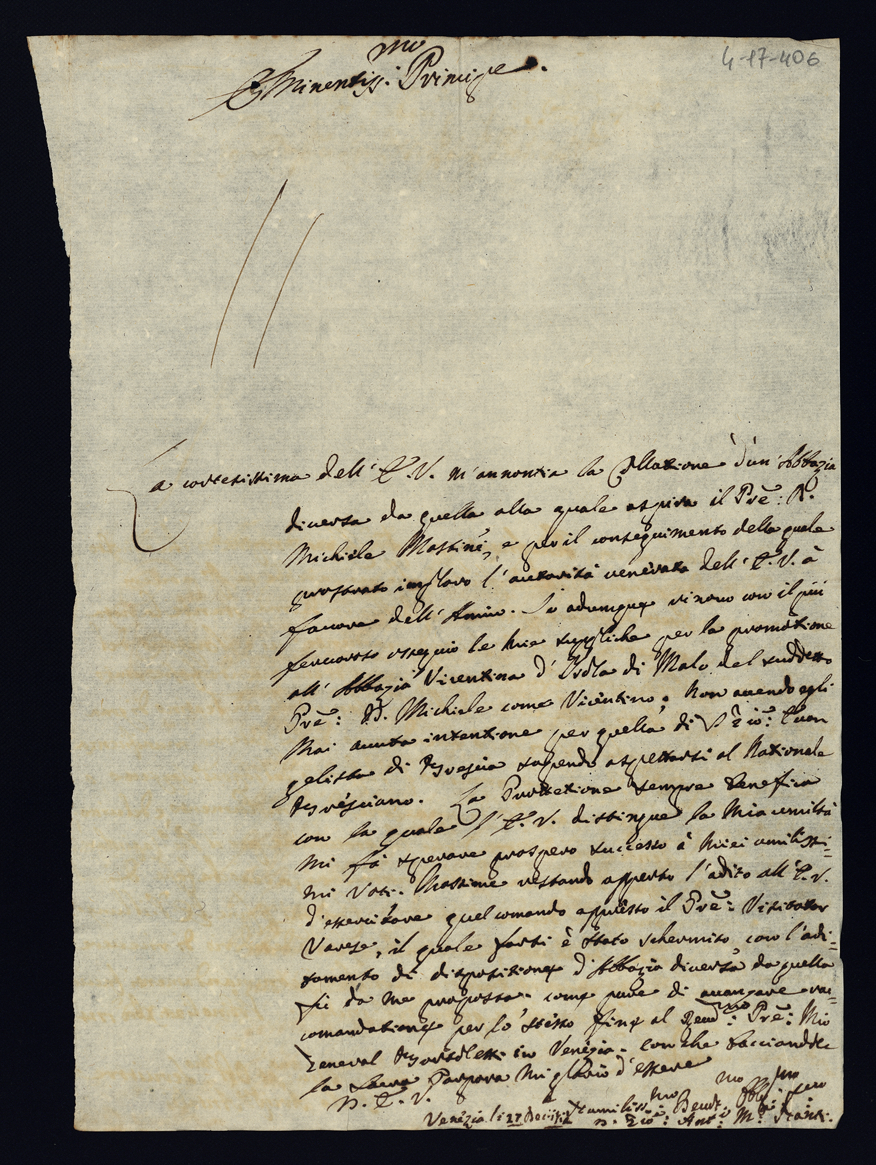 4-17-406
Eminentiss.mo Principe.
La cortesissima dell' E. V. m'annontia la Collatione d'un' Abbazia
diversa da quella alla quale aspira il Prē: D.
Michiele Mastini, e per il conseguimento della quale
prostrato imploro l'autorità venerata dell' E. V. à
favore dell' Amico. Io adunque rinovo con il più
feruoroso ossequio le mie suppliche per la promotione
all' Abbazia Vicentina d'Isola di Malo del suddetto
Prē: D. Michiele come Vicentino; non auendo egli
mai auuta intentione per quella di S. Gio: Euan
gelista di Brescia sapendo aspettarsi al Nationale
Bresciano. La Protettione sempre benefica
con la quale l' E. V. distingue la mia umiltà
mi fà sperare prospero successo à miei umilissi=
mi Voti. Massime restando apperto l'adito all' E. V.
d'essercitare quel comando appresso il Prē: Visitator
Varese, il quale forsi è stato schermito con l'adi=
tamento di dispositione d'Abbazia diversa da quella
fù da me proposta. come pure di auanzare rac=
comandatione per lo stesso fine al Reud.mo Prē: Mio
General in Venezia. con che bacciandole
la Sacra Porpora mi glorio d'essere
D. E. V.
Venezia li 27
Umiliss.mo Deuot.mo Obb.mo
D. Gio: Ant.o M.a